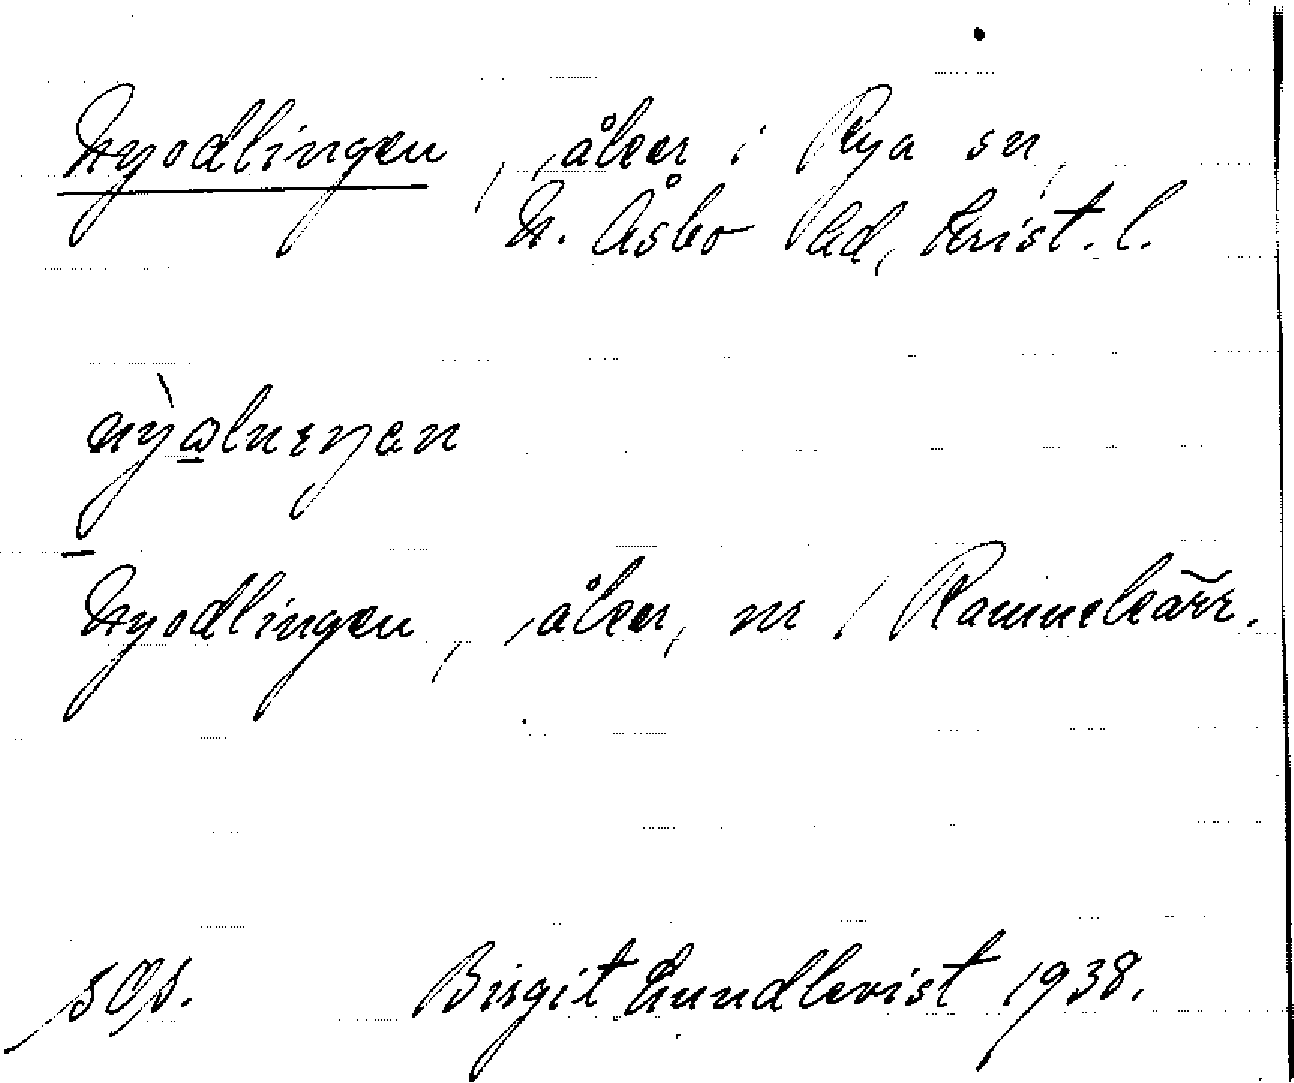 Nyodlingen, åker i Rya sn,
N. Åsbo hd, Krist. l.
Nyodlingen, åker, nr 1 Rammekärr.
Birgit Lundkvist 1938.